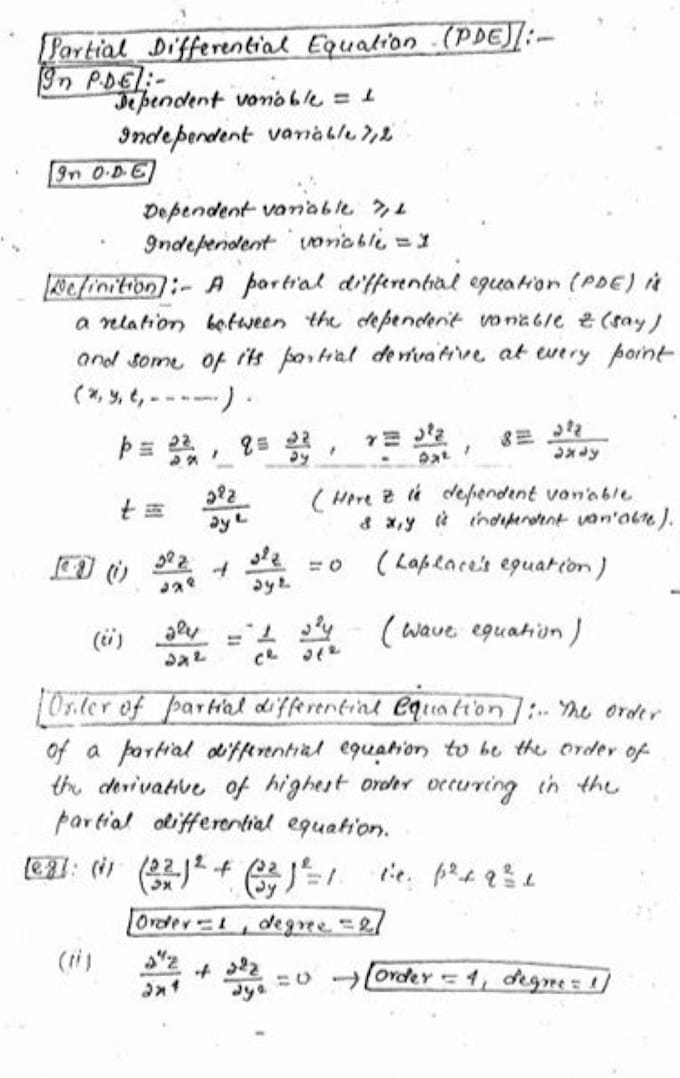 Partial Differential Equation (PDE) :-
In P.D.E :-
Dependent variable = 1
Independent variable ≥ 2
In O.D.E
Dependent variable ≥ 1
Independent variable = 1
Definition :- A partial differential equation (PDE) is
a relation between the dependent variable z (say)
and some of its partial derivative at every point
(x, y, t, ------).
p ≡ ∂z/∂x , q ≡ ∂z/∂y , r ≡ ∂²z/∂x² , s ≡ ∂²z/∂x∂y
t ≡ ∂²z/∂y² (Here z is dependent variable
& x,y is independent variable).
e.g (i) ∂²z/∂x² + ∂²z/∂y² = 0 (Laplace's equation)
(ii) ∂²y/∂x² = 1/c² ∂²y/∂t² (Wave equation)
Order of partial differential Equation :-. The order
of a partial differential equation to be the order of
the derivative of highest order occuring in the
partial differential equation.
e.g : (i) (∂z/∂x)² + (∂z/∂y)² = 1 i.e. p² + q² = 1
Order = 1 , degree = 2
(ii) ∂⁴z/∂x⁴ + ∂²z/∂y² = 0 → Order = 4, degree = 1